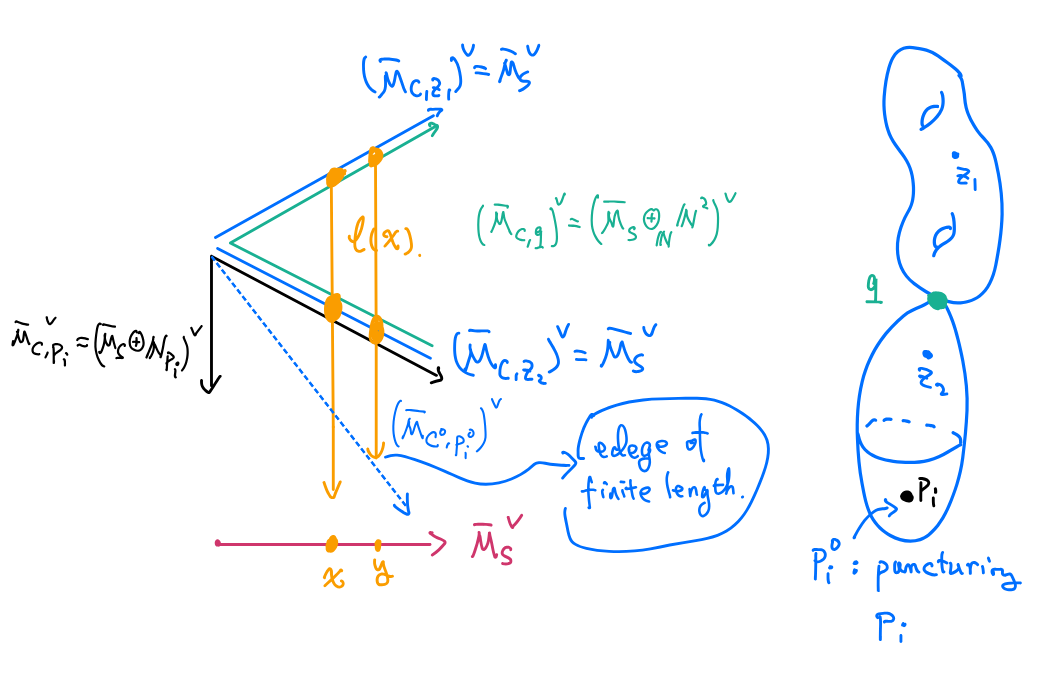 (M̄_{C,z₁})^∨ = M̄_S^∨
z₁
ℓ(x).
(M̄_{C,q})^∨ = (M̄_S ⊕_ℕ ℕ²)^∨
q
M̄_{C,P_i}^∨ = (M̄_S ⊕ ℕ_{P_i})^∨
(M̄_{C,z₂})^∨ = M̄_S^∨
z₂
(M̄_{C°,P_i°})^∨
edege of
finite length.
P_i
M̄_S^∨
x y
P_i° : puncturing
P_i